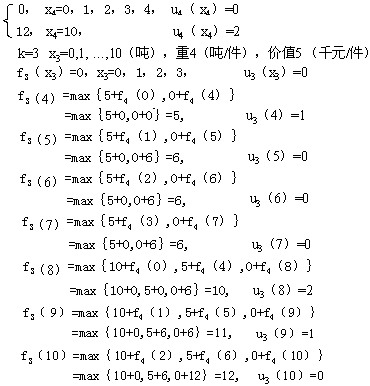 0， x₄=0，1，2，3，4， u₄（x₄）=0
12， x₄=10， u₄（x₄）=2
k=3 x₃=0,1, …,10（吨），重4（吨/件），价值5（千元/件）
f₃（x₃）=0，x₃=0，1，2，3， u₃（x₃）=0
f₃（4）=max｛5+f₄（0）,0+f₄（4）｝
=max｛5+0,0+0｝=5， u₃（4）=1
f₃（5）=max｛5+f₄（1）,0+f₄（5）｝
=max｛5+0,0+6｝=6， u₃（5）=0
f₃（6）=max｛5+f₄（2）,0+f₄（6）｝
=max｛5+0,0+6｝=6， u₃（6）=0
f₃（7）=max｛5+f₄（3）,0+f₄（7）｝
=max｛5+0,0+6｝=6， u₃（7）=0
f₃（8）=max｛10+f₄（0）,5+f₄（4）,0+f₄（8）｝
=max｛10+0,5+0,0+6｝=10， u₃（8）=2
f₃（9）=max｛10+f₄（1）,5+f₄（5）,0+f₄（9）｝
=max｛10+0,5+6,0+6｝=11， u₃（9）=1
f₃（10）=max｛10+f₄（2）,5+f₄（6）,0+f₄（10）｝
=max｛10+0,5+6,0+12｝=12， u₃（10）=0